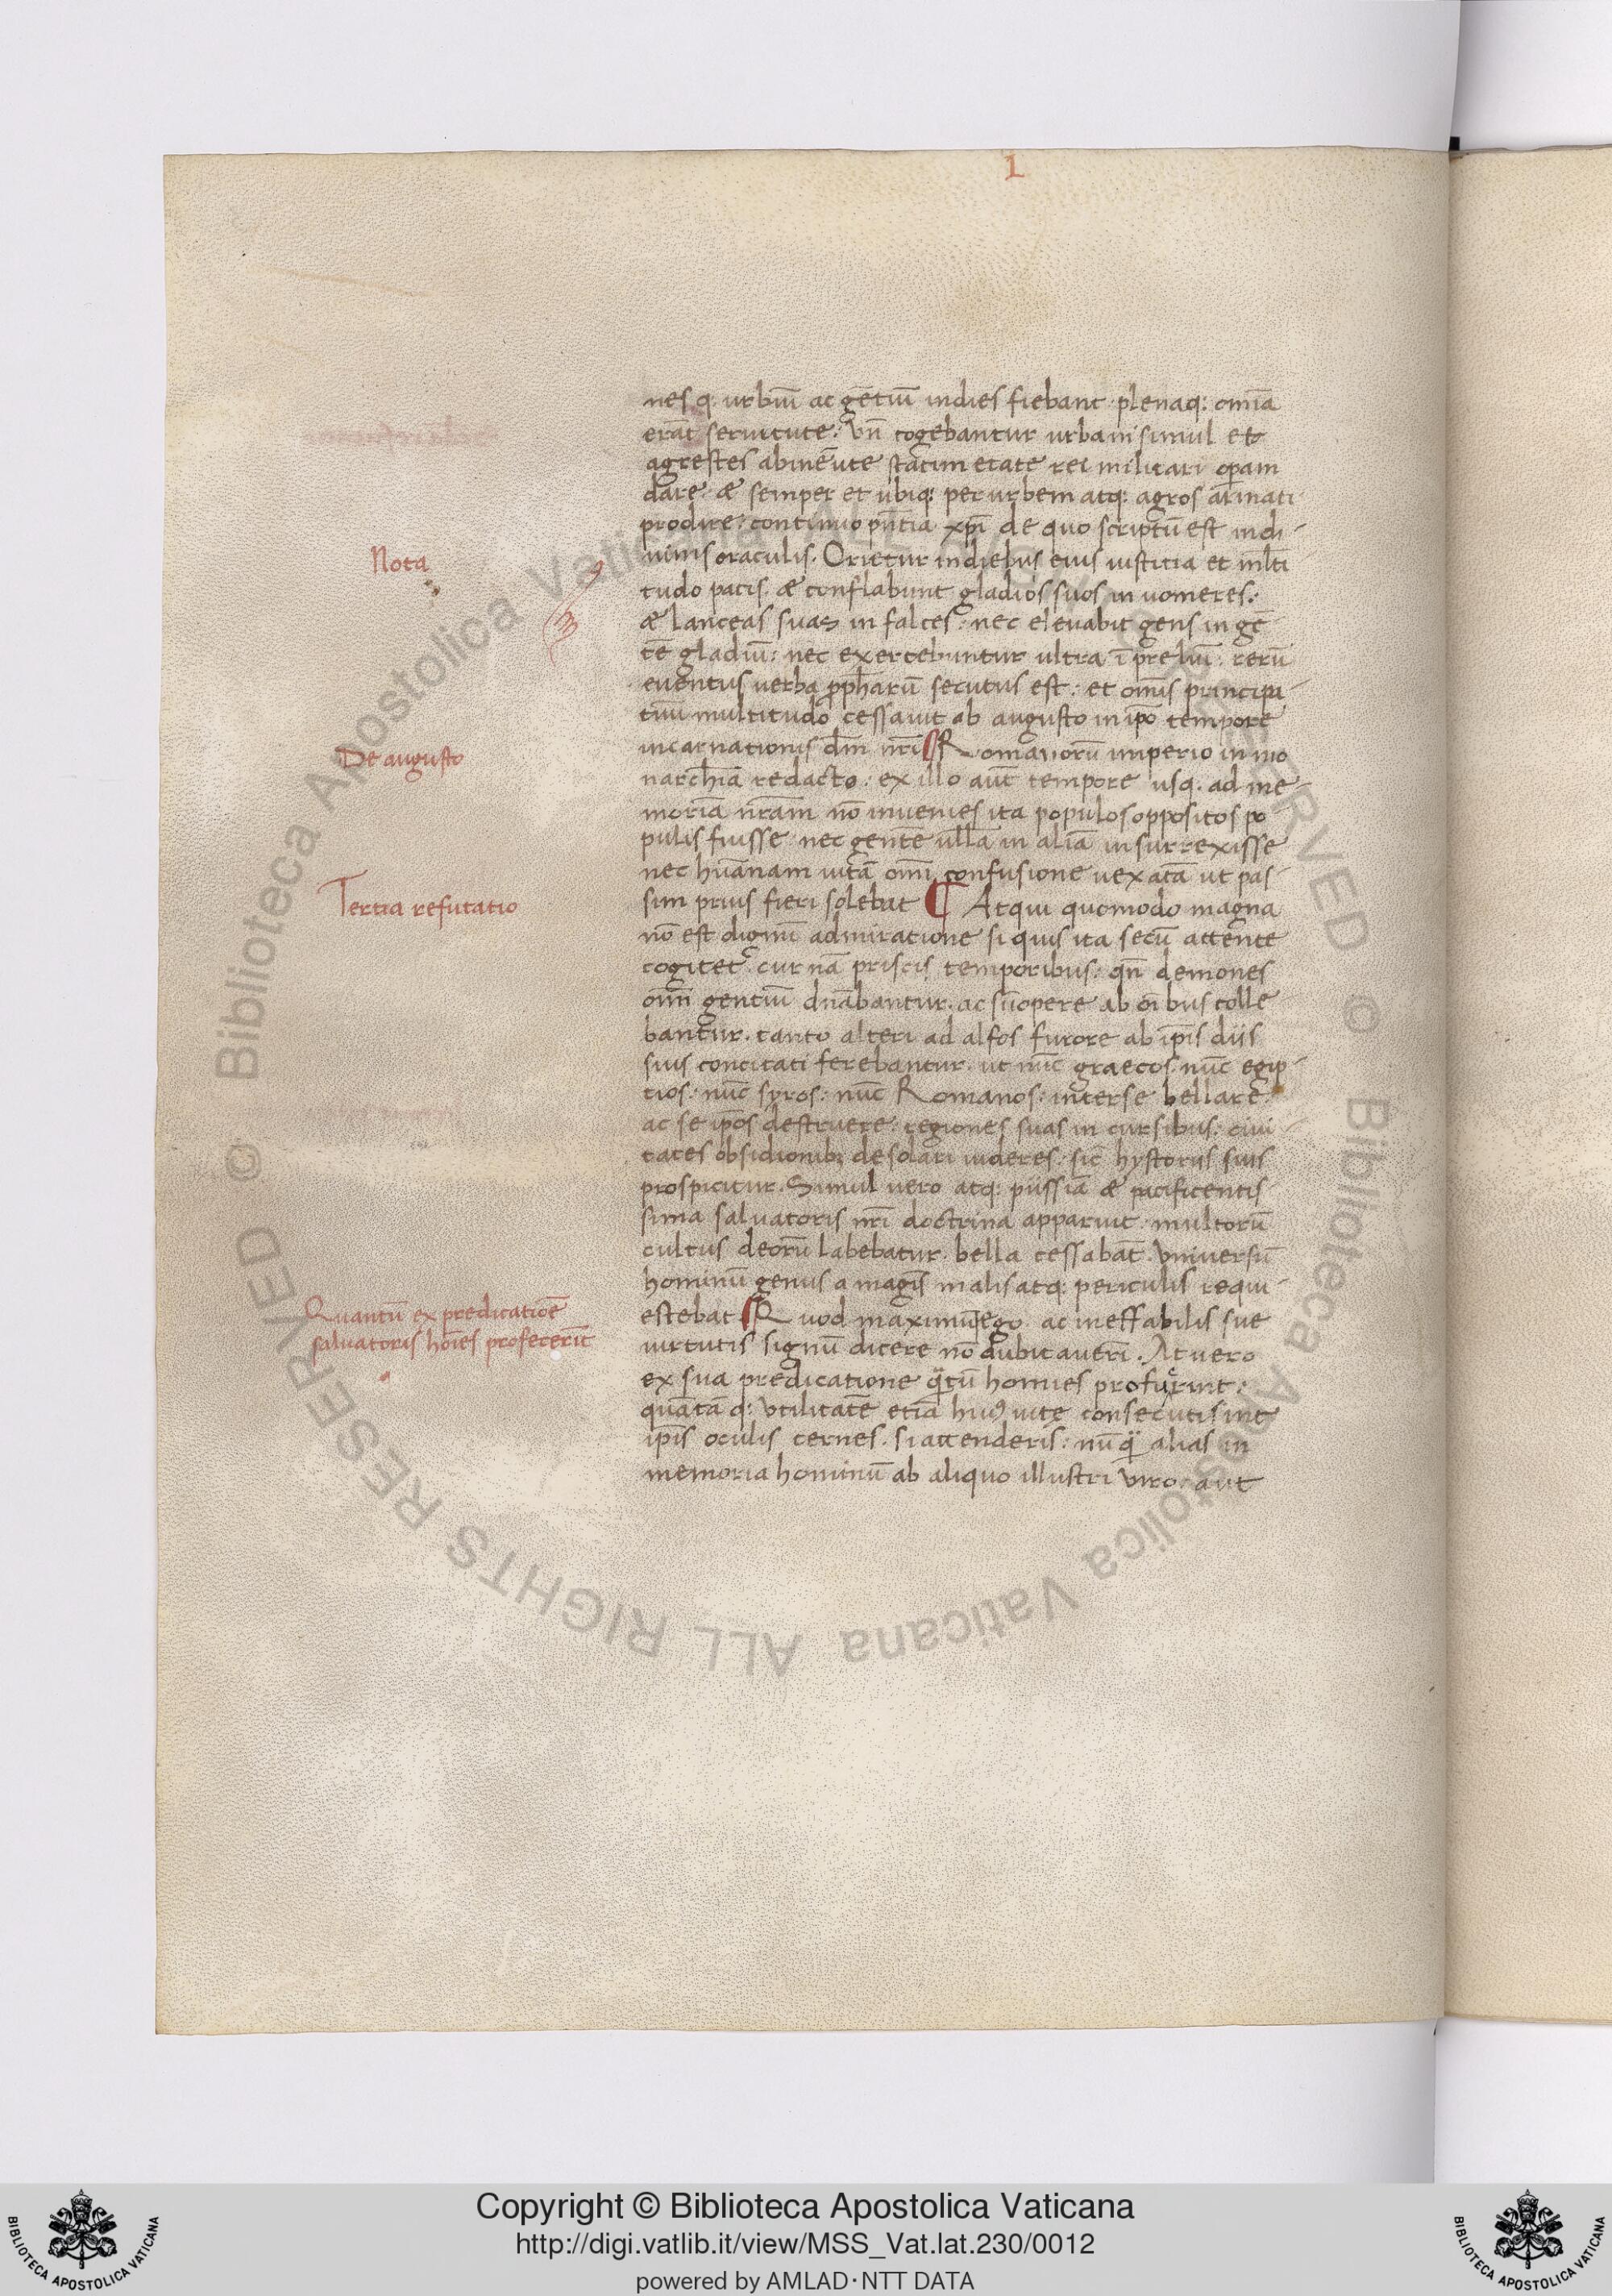 1
nes q. urbiū ac gētiū indies fiebant. plenaq: omīa
erāt seruitute: Vn̄ cogebantur urbani simul et
agrestes abineūte statim etate rei militari oꝑam
dare: æ semper et ubiq: per urbem atq: agros armati
prodire: continuo pn̄tia xp̄i de quo scriptū est indi-
uinis oraculis. Orietur indiebus eius iustitia et ml̄ti
tudo pacis. æ conflabunt gladios suos in uomeres:
æ lanceas suas in falces: nec eleuabit gens in gē
tē gladiū: nec exercebuntur ultra ī preliū: rerū
euentus uerba ꝓph̄arū secutus est: et omīs principa-
tuū multitudo cessauit ab augusto in ip̄o tempore
incarnationis dn̄i nr̄i Romanorū imperio in mo
narchiā redacto: ex illo aut̄ tempore usq. ad me-
moriā nr̄am nō inuenies ita populos oppositos po
pulis fuisse nec gentē ullā in aliā insurrexisse
nec hūanam uitā omī confusione uexatā ut pas-
sim prius fieri solebat Atqui quomodo magna
nō est dignū admiratione si quis ita secū attente
cogitet. cur nā priscis temporibus: qn̄ demones
om̄i gentiū dn̄abantur. ac sūopere ab oībus colle
bantur. tanto alteri ad alt̄os furore ab ip̄is diis
suis concitati ferebantur. ut nūc graecos. nūc egip-
tios: nūc syros: nūc Romanos: interse bellare:
ac se ip̄os destruere: regiones suas in cursibus: ciui-
tates obsidionib; desolari uideres: sic hystoriis suis
prospicitur. Simul uero atq: piissīa æ pacificentis-
sima saluatoris nr̄i doctrina apparuit. multorū
cultus deorū labebatur. bella cessabāt. Vniuersū
hominū genus a magīs malis atq: periculis requi-
escebat Quod maximū ego ac ineffabilis sue
uirtutis signū dicere nō dubitauerī. At uero
ex sua predicatione qͣtū homies profuerint:
quātā q: Vtilitatē etiā huiꝰ uite consecuti sint
ip̄is oculis cernes. si attenderis: nū qͣ alias in
memoria hominū ab aliquo illustri Viro. aut
Nota
De augusto
Tertia refutatio
Quantū ex predicatiōe
saluatoris hoīes profecerīt
© Biblioteca Apostolica Vaticana ALL RIGHTS RESERVED © Biblioteca Apostolica Vaticana ALL RIGHTS RESERVED
Copyright © Biblioteca Apostolica Vaticana
http://digi.vatlib.it/view/MSS_Vat.lat.230/0012
powered by AMLAD·NTT DATA
BIBLIOTECA APOSTOLICA VATICANA
BIBLIOTECA APOSTOLICA VATICANA